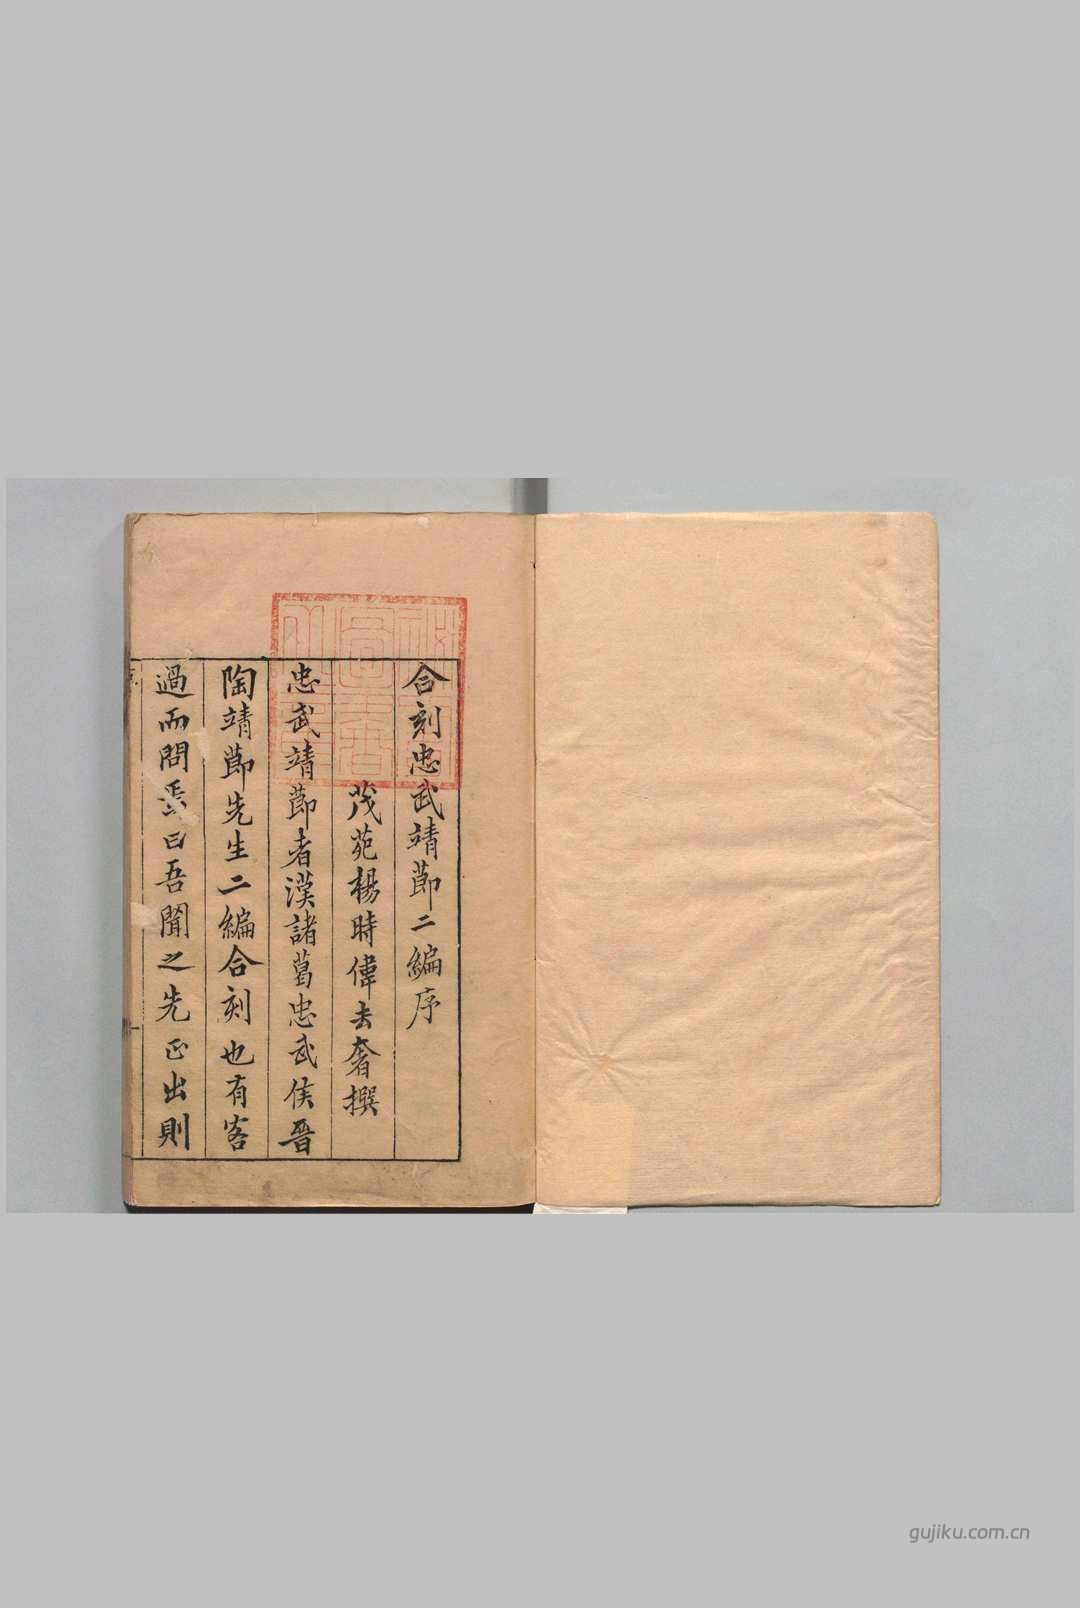 合刻忠武靖節二編序
茂苑楊時偉去奢撰
忠武靖節者漢諸葛忠武侯晉
陶靖節先生二編合刻也有客
過而問焉曰吾聞之先正出則
gujiku.com.cn